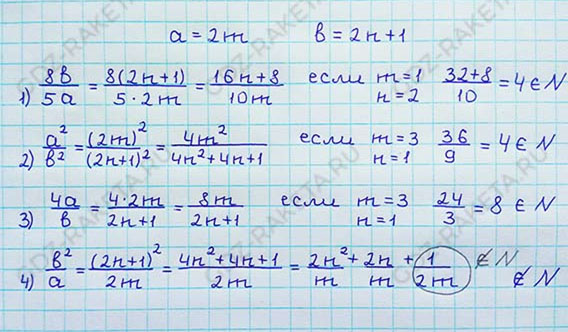 a = 2m   b = 2n + 1
1) 8b/5a = 8(2n+1)/(5·2m) = (16n+8)/10m   если m=1 n=2   (32+8)/10 = 4 ∈ N
2) a²/b² = (2m)²/(2n+1)² = 4m²/(4n²+4n+1)   если m=3 n=1   36/9 = 4 ∈ N
3) 4a/b = 4·2m/(2n+1) = 8m/(2n+1)   если m=3 n=1   24/3 = 8 ∈ N
4) b²/a = (2n+1)²/2m = (4n²+4n+1)/2m = 2n²/m + 2n/m + 1/2m ∉ N   ∉ N
GDZ-RAKETA.RU